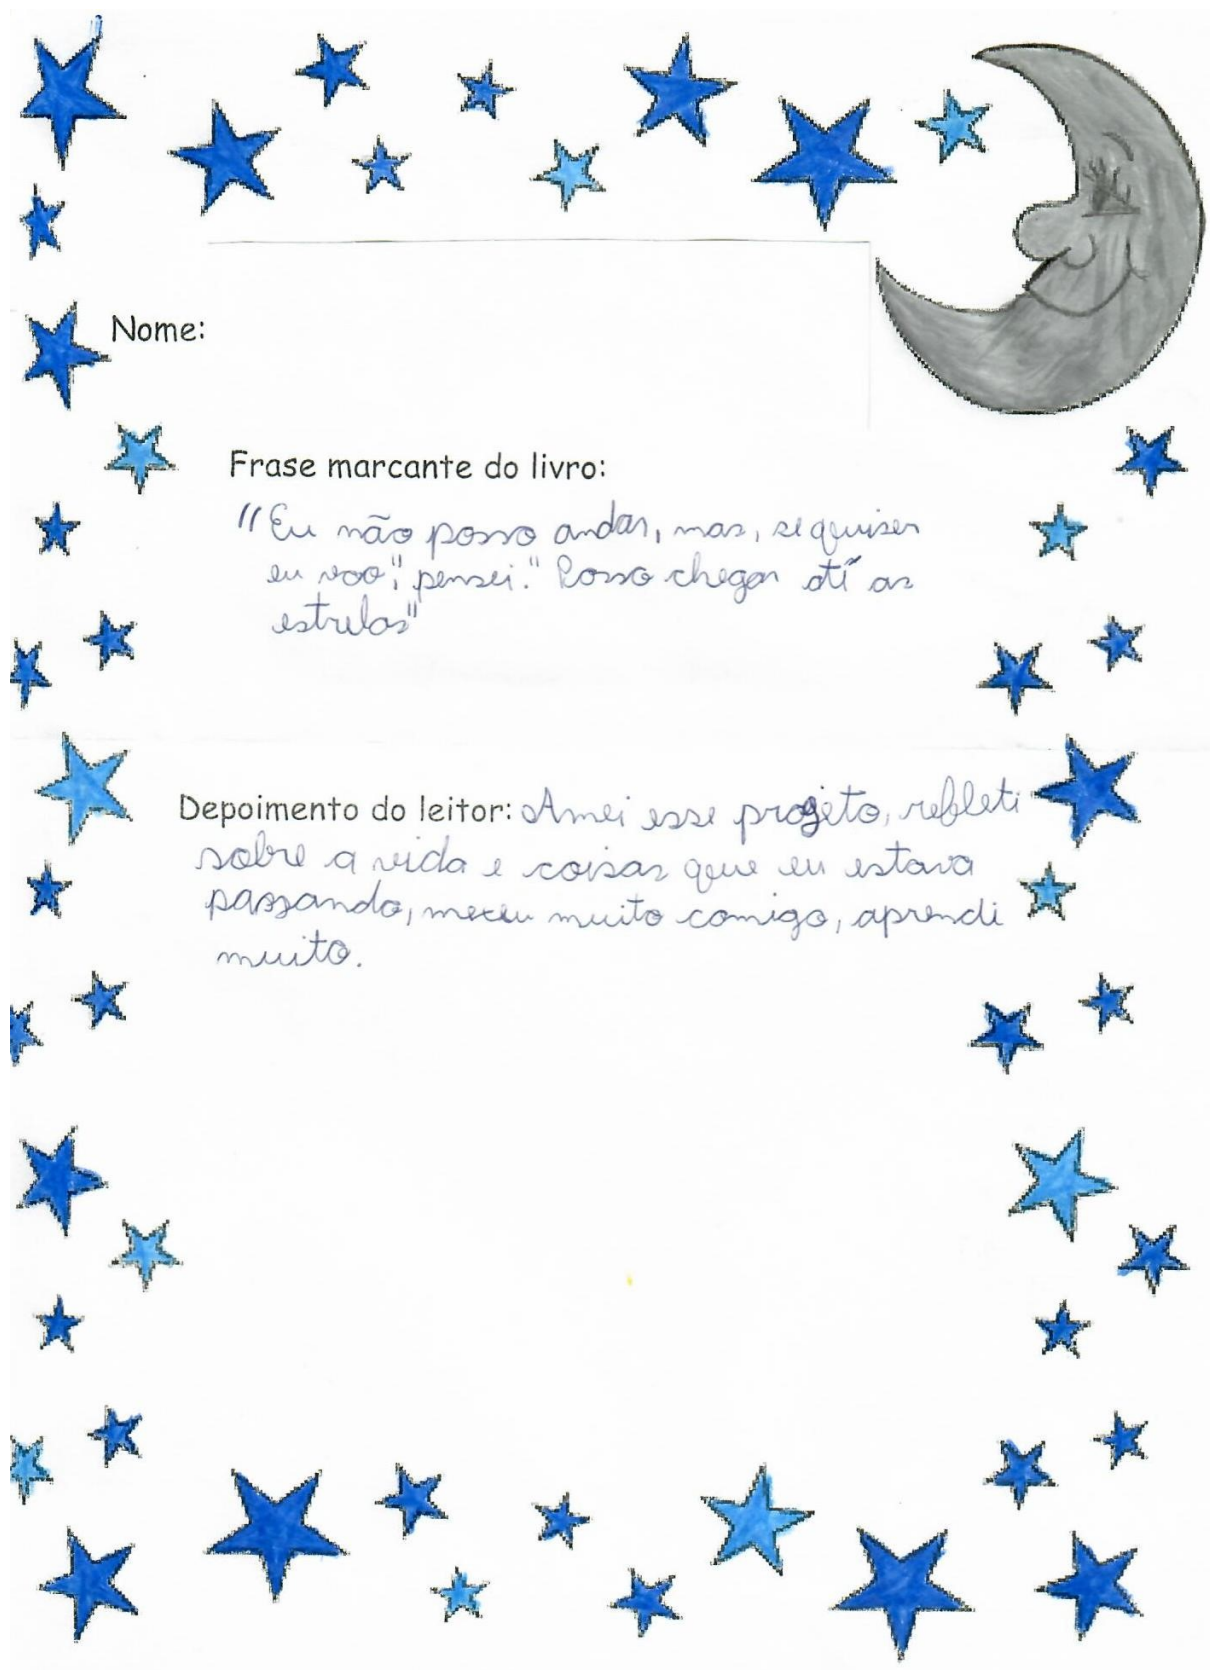 Nome:
Frase marcante do livro:
"Eu não posso andar, mas, se quiser
eu voo", pensei." Posso chegar até as
estrelas"
Depoimento do leitor: Amei esse projeto, refleti
sobre a vida e coisas que eu estava
passando, mexeu muito comigo, aprendi
muito.